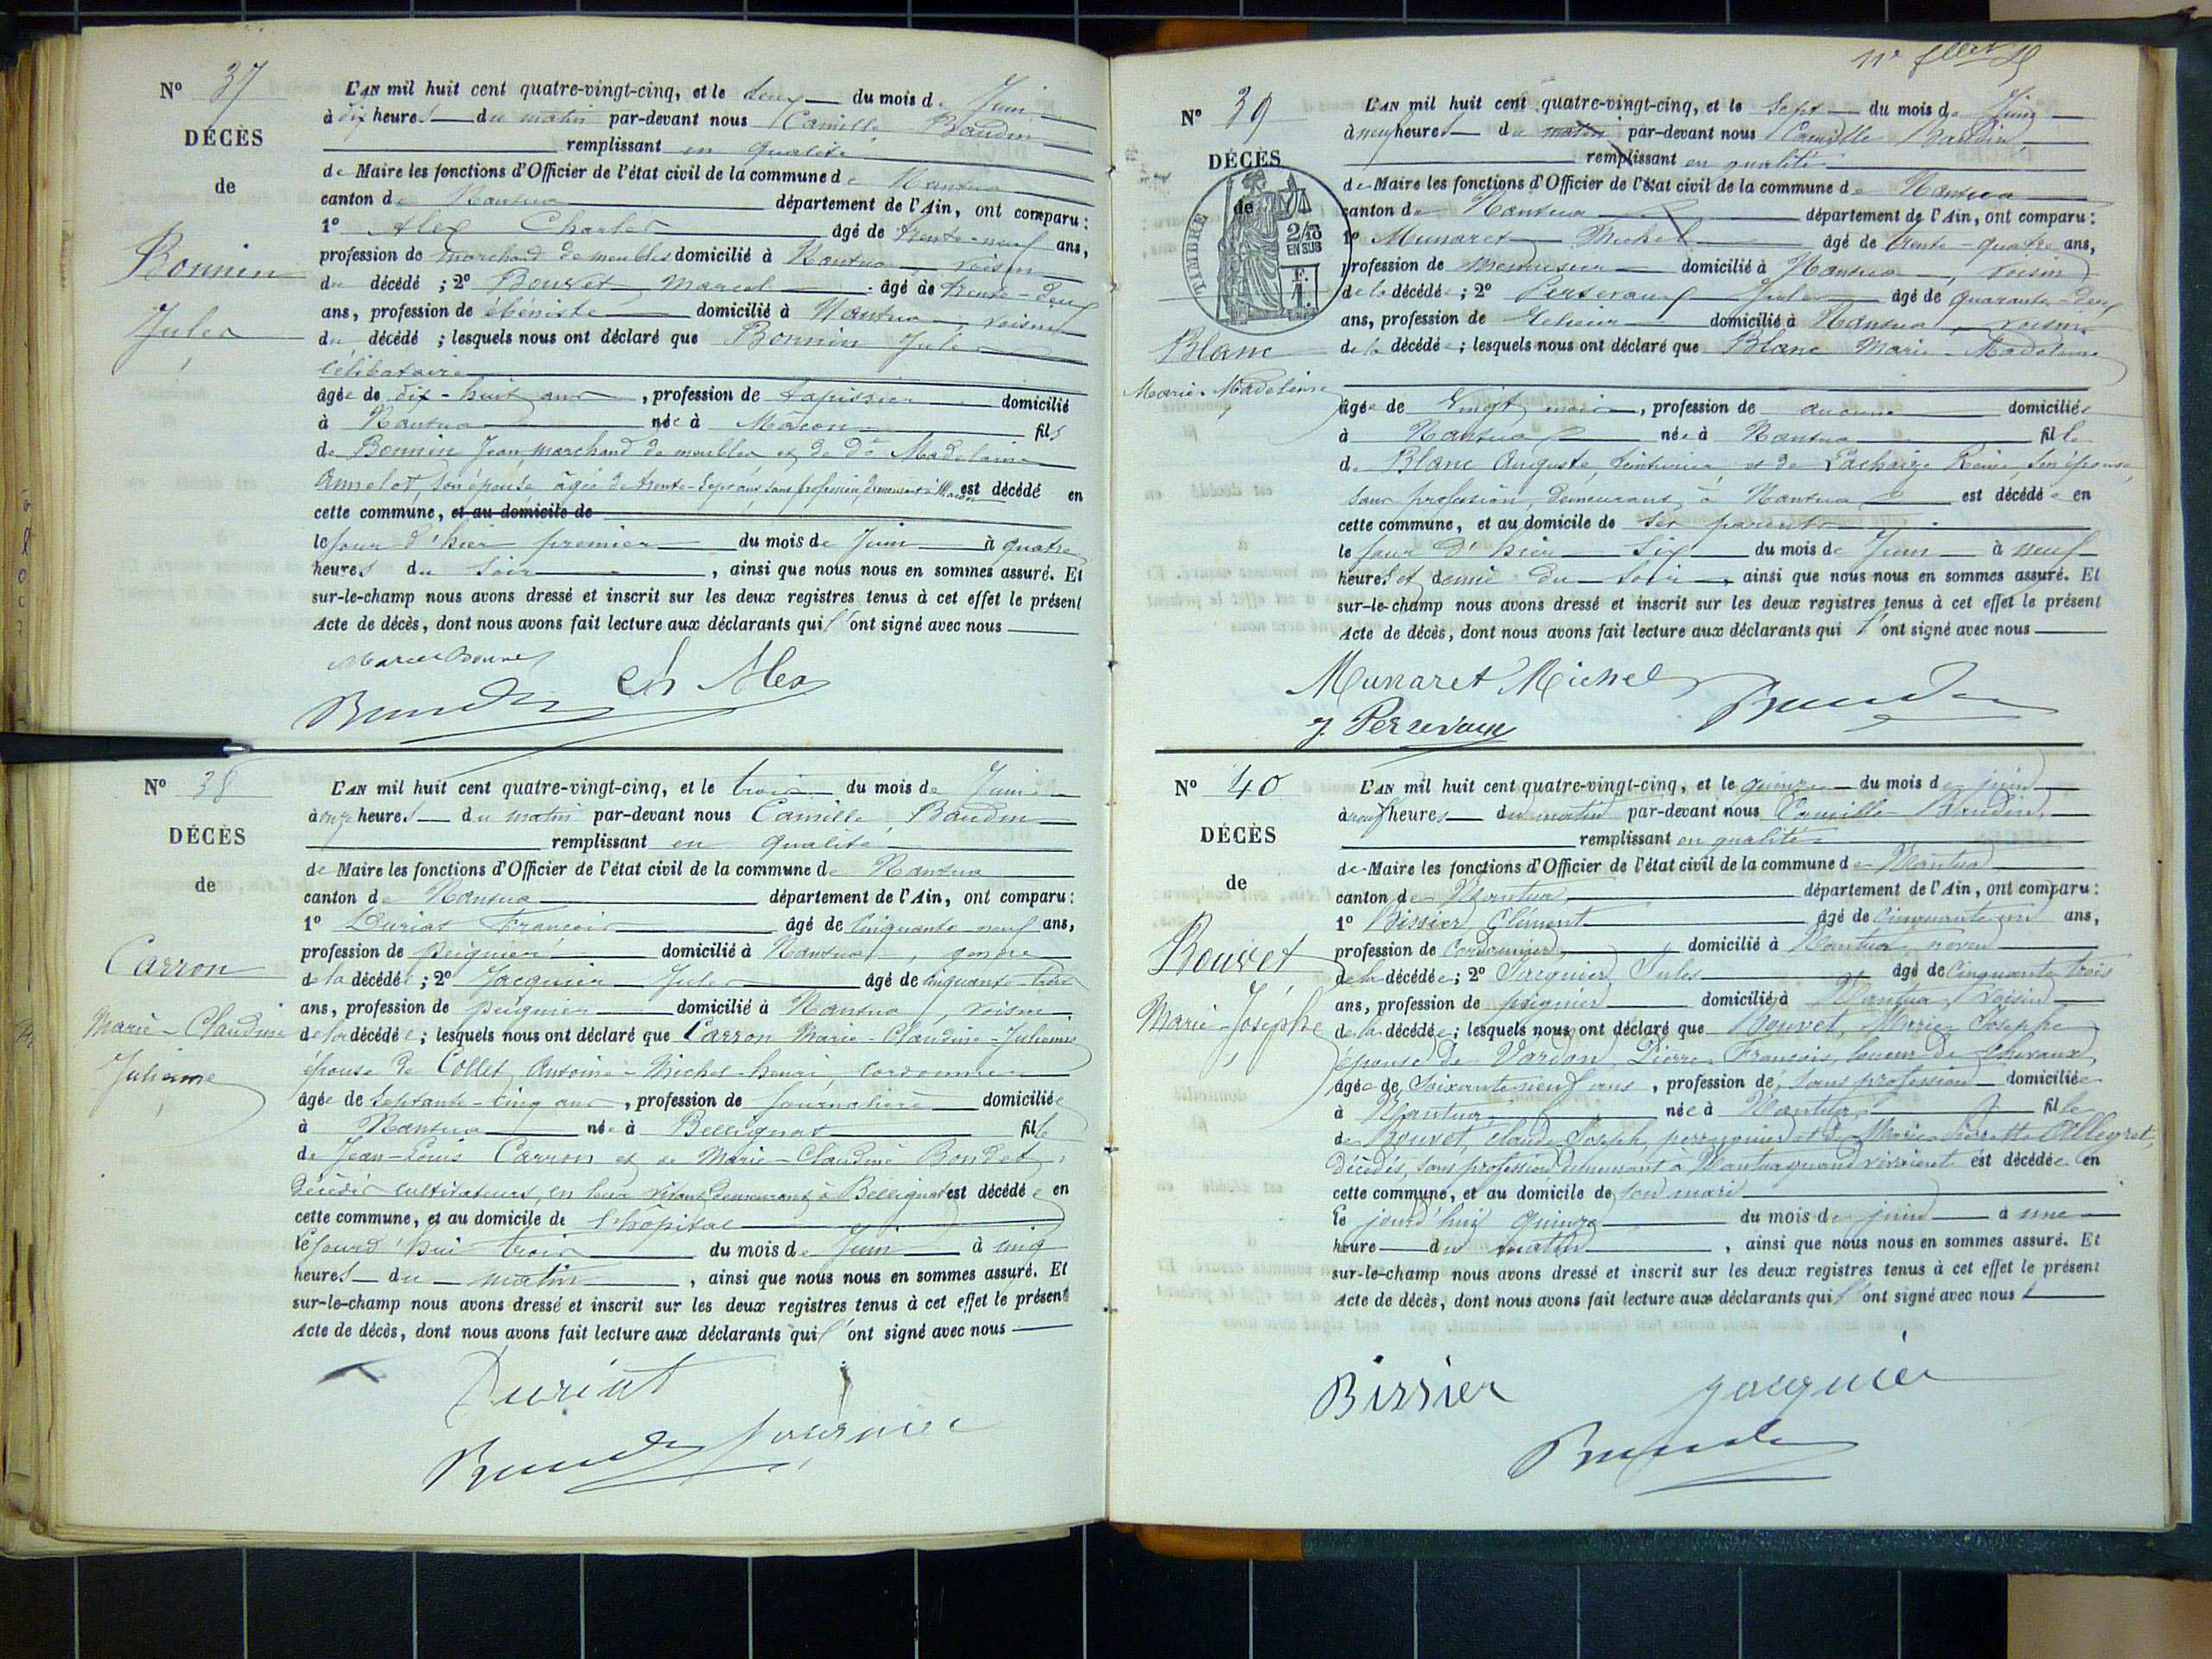 N° 37
DÉCÈS
de
Bonnin
Jules
L'AN mil huit cent quatre-vingt-cinq, et le deux du mois de Juin
à dix heures du matin par-devant nous Camille Baudin
remplissant en qualité
de Maire les fonctions d'Officier de l'état civil de la commune de Nantua
canton de Nantua département de l'Ain, ont comparu :
1° Alex Charles âgé de trente-neuf ans,
profession de marchand de meubles domicilié à Nantua, voisin
du décédé ; 2° Bouvet Marcel âgé de trente-deux
ans, profession de ébéniste domicilié à Nantua, voisin
du décédé ; lesquels nous ont déclaré que Bonnin Jules
célibataire
âgée de dix-huit ans, profession de tapissier domicilié
à Nantua née à Mâcon fils
de Bonnin Jean marchand de meubles et de De Madelaine
Amelot, son épouse âgée de trente-sept ans sans profession, demeurant à Macon est décédé en
cette commune, et au domicile de
le jour d'hier premier du mois de Juin à quatre
heures du soir, ainsi que nous nous en sommes assuré. Et
sur-le-champ nous avons dressé et inscrit sur les deux registres tenus à cet effet le présent
Acte de décès, dont nous avons fait lecture aux déclarants qui l'ont signé avec nous
Marcel Bouvet
Baudin Ch Alex
N° 38
DÉCÈS
de
Carron
Marie-Claudine
Julienne
L'AN mil huit cent quatre-vingt-cinq, et le trois du mois de Juin
à onze heures du matin par-devant nous Camille Baudin
remplissant en qualité
de Maire les fonctions d'Officier de l'état civil de la commune de Nantua
canton de Nantua département de l'Ain, ont comparu :
1° Duriat François âgé de cinquante neuf ans,
profession de peignier domicilié à Nantua, gendre
de la décédée ; 2° Jacquier Jules âgé de cinquante-trois
ans, profession de peignier domicilié à Nantua, voisin
de la décédée ; lesquels nous ont déclaré que Carron Marie-Claudine-Julienne
épouse de Collet Antoine-Michel-henri, cordonnier
âgée de septante-cinq ans, profession de journalière domiciliée
à Nantua née à Bellignat fille
de Jean-Louis Carron et de Marie-Claudine Bondet,
décédés cultivateurs, en leur vivant demeurant à Bellignat est décédée en
cette commune, et au domicile de l'hôpital
le jourd'hui trois du mois de Juin à cinq
heures du matin, ainsi que nous nous en sommes assuré. Et
sur-le-champ nous avons dressé et inscrit sur les deux registres tenus à cet effet le présent
Acte de décès, dont nous avons fait lecture aux déclarants qui l'ont signé avec nous
Duriat
Baudin Jacquier
11e fllet
N° 39
DÉCÈS
de
TIMBRE
2/10
EN SUS
F.
1.
Blanc
Marie-Madeleine
L'AN mil huit cent quatre-vingt-cinq, et le sept du mois de Juin
à neuf heures du matin par-devant nous Camille Baudin
remplissant en qualité
de Maire les fonctions d'Officier de l'état civil de la commune de Nantua
canton de Nantua département de l'Ain, ont comparu :
1° Munaret Michel âgé de trente-quatre ans,
profession de menuisier domicilié à Nantua, voisin
de la décédée ; 2° Perseraux Jules âgé de quarante-deux
ans, profession de domicilié à Nantua, voisin
de la décédée ; lesquels nous ont déclaré que Blanc Marie-Madeleine
âgée de vingt mois, profession de aucune domiciliée
à Nantua née à Nantua fille
de Blanc Auguste, teinturier et de Lacharge Reine, son épouse,
sans profession, demeurant à Nantua est décédée en
cette commune, et au domicile de ses parents
le jour d'hier six du mois de Juin à neuf
heures et demie du soir, ainsi que nous nous en sommes assuré. Et
sur-le-champ nous avons dressé et inscrit sur les deux registres tenus à cet effet le présent
Acte de décès, dont nous avons fait lecture aux déclarants qui l'ont signé avec nous
Munaret Michel Baudin
J. Perseraux
N° 40
DÉCÈS
de
Bouvet
Marie-Josephe
L'AN mil huit cent quatre-vingt-cinq, et le quinze du mois de juin
à neuf heures du matin par-devant nous Camille Baudin,
remplissant en qualité
de Maire les fonctions d'Officier de l'état civil de la commune de Nantua
canton de Nantua département de l'Ain, ont comparu :
1° Bissier Clément âgé de cinquante un ans,
profession de cordonnier domicilié à Nantua, neveu
de la décédée ; 2° Jacquier Jules âgé de cinquante trois
ans, profession de peignier domicilié à Nantua, voisin
de la décédée ; lesquels nous ont déclaré que Bouvet, Marie Josephe
épouse de Vardon, Pierre François, loueur de chevaux,
âgée de soixante neuf ans, profession de, sans profession domiciliée
à Nantua, née à Nantua, fille
de Bouvet, Claude Joseph, perruquier et de Marie Pierrette Allegret,
décédés, sans profession demeurant à Nantua quand vivaient est décédée en
cette commune, et au domicile de son mari
le jourd'hui quinze du mois de juin à une
heure du matin, ainsi que nous nous en sommes assuré. Et
sur-le-champ nous avons dressé et inscrit sur les deux registres tenus à cet effet le présent
Acte de décès, dont nous avons fait lecture aux déclarants qui l'ont signé avec nous
Bissier Jacquier
Baudin